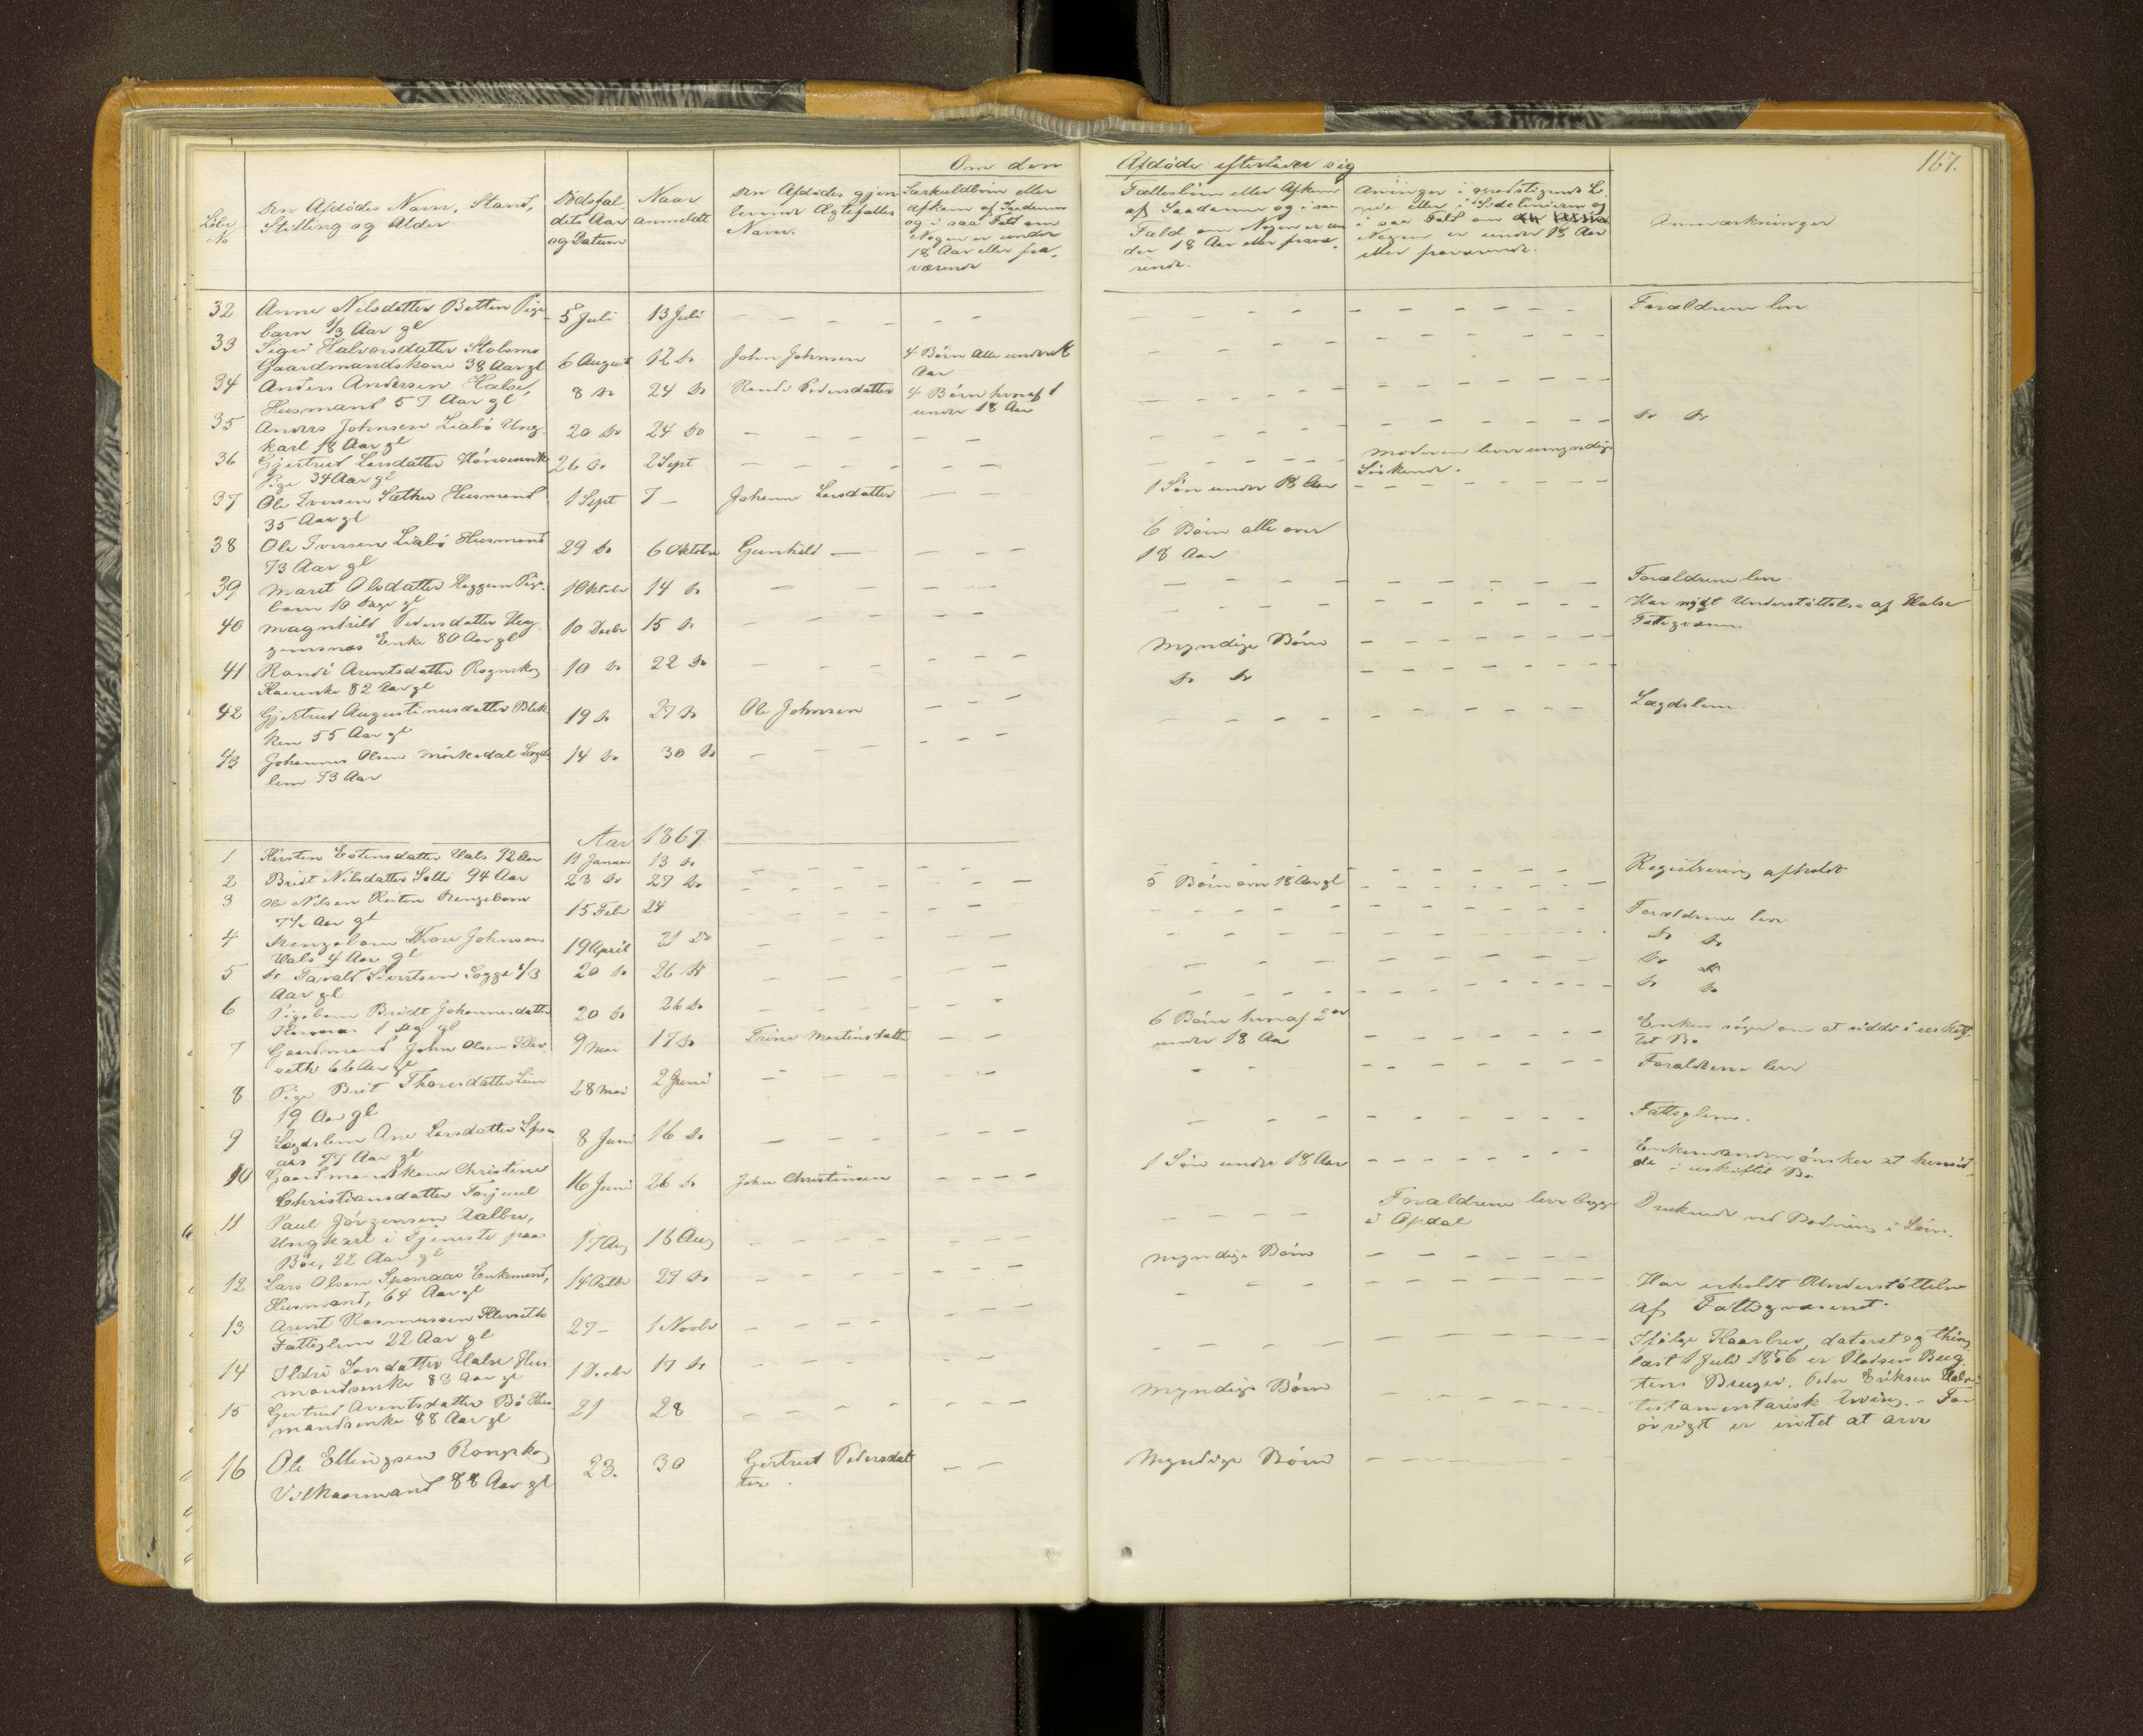 Om den Afdøde efterlader sig
167.
Løbe No
Den Afdødes Navn, Stand, Stilling og Alder
Dødsfaldets Aar og Datum
Naar anmeldt
Den Afdødes gjenlevende Ægtefælles Navn.
Særkuldbørn eller Afkom af Saadanne og i saa Fald om Nogen er under 18 Aar eller fraværende
Fællesbørn eller Afkom af Saadanne og i saa Fald om Nogen er under 18 Aar eller fraværende.
Arvinger i opadstigende Linie eller i Sidelinierne og i saa Fald om Nogen er under 18 Aar eller fraværende.
Anmærkninger
32 Anne Nilsdatter Betten Pigebarn 1/3 Aar gl 5 Juli 13 Juli Forældrene lever
33 Sigri Halvorsdatter Gaardmandskone 38 Aar gl 6 August 12 Do John Johnsen 4 Børn alle under Aar
34 Anders Andersen Halse Husmand 57 Aar gl 8 Do 24 Do Randi Pedersdatter 4 Børn hvoraf 1 under 18 Aar
35 Anders Johnsen Liabø Ungkarl 18 Aar gl 20 Do 24 Do Do Do
36 Gjertrud Larsdatter Pige 34 Aar gl 26 Do 2 Sept Moderen lever umyndige Søskende.
37 Ole Iversen Sæther Husmand 35 Aar gl 1 Sept 7 — Johanne Larsdatter 1 Søn under 18 Aar
38 Ole Iversen Liabø Husmand 73 Aar gl 29 Do 6 Oktober Gunhild — 6 Børn alle over 18 Aar
39 Marit Olsdatter Heggem Pigebarn 10 Dage gl 1 Oktober 14 Do Forældrene lever
40 Magnhild Pedersdatter Heggemsnæs Enke 80 Aar gl 10 Decbr 15 Do Myndige Børn Har nydt Understøttelse af Halse Fattigvæsen
41 Randi Arentsdatter Rognskog Kaarenke 82 Aar gl 10 Do 22 Do Do Do
42 Gjertrud Augustinusdatter Blekken 55 Aar gl 19 Do 27 Do Ole Johnsen Lægdslem
43 Johannes Olsen Mørkedal Lægdslem 73 Aar 14 Do 30 Do
Aar 1867
1 Kirsten Estensdatter Vals 72 Aar 11 Januar 13 Do 5 Børn over 18 Aar gl Registrering afholdt
2 Bridt Nilsdatter Sætti 94 Aar 23 Do 27 Do
3 Ole Nilsen Reiten Drengebarn 7½ Aar gl 15 Febr 24 Forældrene lever
4 Drengebarn Thore Johnsen Vals 4 Aar gl 19 April 21 Do Do Do
5 Do Tarald Sivertsen Sogge 1/3 Aar gl 20 Do 26 Do Do Do
6 Pigebarn Bridt Johannesdatter 1 Dag gl 20 Do 26 Do Do Do
7 Gaardmand John Olsen Klevseth 66 Aar gl 9 Mai 17 Do Trine Martinsdatter 6 Børn hvoraf 2de under 18 Aar Enken søger om at sidde i uskiftet Bo
8 Pige Brit Thoresdatter Lien 19 Aar gl 28 Mai 2 Juni Forældrene lever
9 Lægdslem Ane Larsdatter 77 Aar gl 8 Juni 16 Do Fattiglem.
10 Gaardmandskone Christine Christiansdatter Torjuul 16 Juni 26 Do John Christensen 1 Søn under 18 Aar Enkemanden ønsker at hensidde i uskiftet Bo.
11 Paul Jørgensen Aalbu, Ungkarl i Tjeneste paa Bøe, 22 Aar gl 17 Aug 18 Aug Forældrene lever begge i Opdal Druknede ved Badning i Søen.
12 Lars Olsen Enkemand, Husmand, 64 Aar gl 14 Octbr 29 Do Myndige Børn
13 Arent Rasmussen Klevseth Fattiglem 22 Aar gl 27 — 1 Novbr Har erholdt Understøttelse af Fattigvæsenet.
14 Ildri Larsdatter Halse Husmandsenke 83 Aar gl 1 Decbr 17 Do Ifølge Kaarbrev, dateret og thinglæst 1 Juli 1856 er Pladsen Bugtens Bruger, Peder Eriksen Halse testamentarisk Arving. - Forøvrigt er intet at arve
15 Gertrud Arentsdatter Bø Husmandsenke 88 Aar gl 21 28 Myndige Børn
16 Ole Ellingsen Rongskog Vilkaarmand 88 Aar gl 23. 30 Gertrud Pedersdatter. Myndige Børn